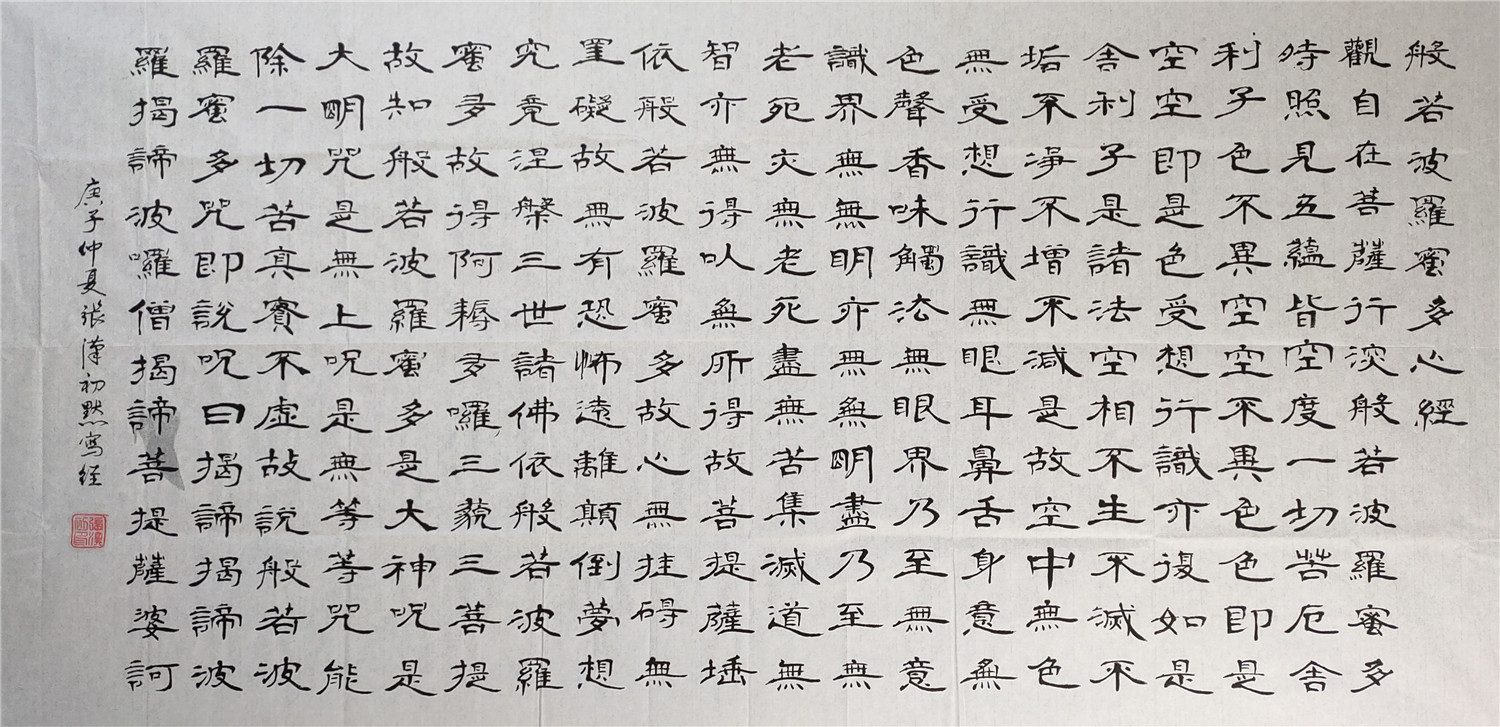 般若波羅蜜多心經
觀自在菩薩行深般若波羅蜜多
時照見五蘊皆空度一切苦厄舍
利子色不異空空不異色色即是
空空即是色受想行識亦復如是
舍利子是諸法空相不生不滅不
垢不淨不增不減是故空中無色
無受想行識無眼耳鼻舌身意無
色聲香味觸法無眼界乃至無意
識界無無明亦無無明盡乃至無
老死亦無老死盡無苦集滅道無
智亦無得以無所得故菩提薩埵
依般若波羅蜜多故心無挂碍無
罣礙故無有恐怖遠離顛倒夢想
究竟涅槃三世諸佛依般若波羅
蜜多故得阿耨多囉三藐三菩提
故知般若波羅蜜多是大神呪是
大明咒是無上呪是無等等咒能
除一切苦真實不虛故說般若波
羅蜜多咒即說呪曰揭諦揭諦波
羅揭諦波囉僧揭諦菩提薩婆訶
庚子仲夏張漢初默寫經